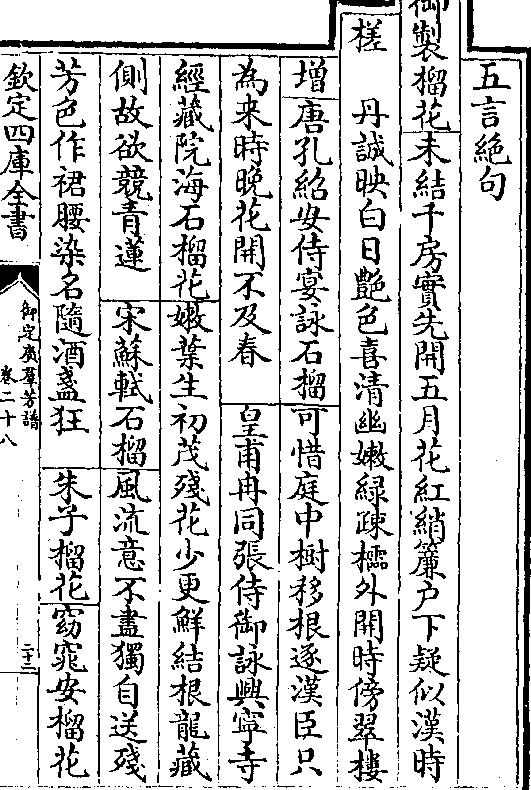 五言絶句
御製榴花未結千房實先開五月花紅綃簾户下疑似漢時
槎　丹誠映白日艷色喜清幽嫩緑疎櫺外開時傍翠樓
增唐孔紹安侍宴詠石榴可惜庭中樹移根逐漢臣只
為来時晚花開不及春　皇甫冉同張侍御詠興寧寺
經藏院海石榴花嫩葉生初茂殘花少更鮮結根龍藏
側故欲競青蓮　宋蘇軾石榴風流意不盡獨自送殘
芳色作裙腰染名隨酒盞狂　朱子榴花窈窕安榴花
欽定四庫全書
御定廣羣芳譜
卷二十八
二十二